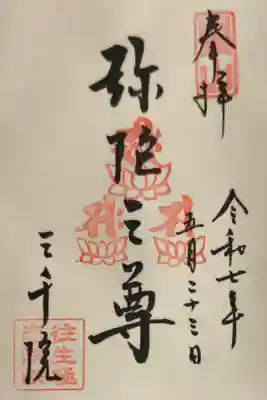 奉拝
令和七年
五月二十三日
弥陀三尊
三千院